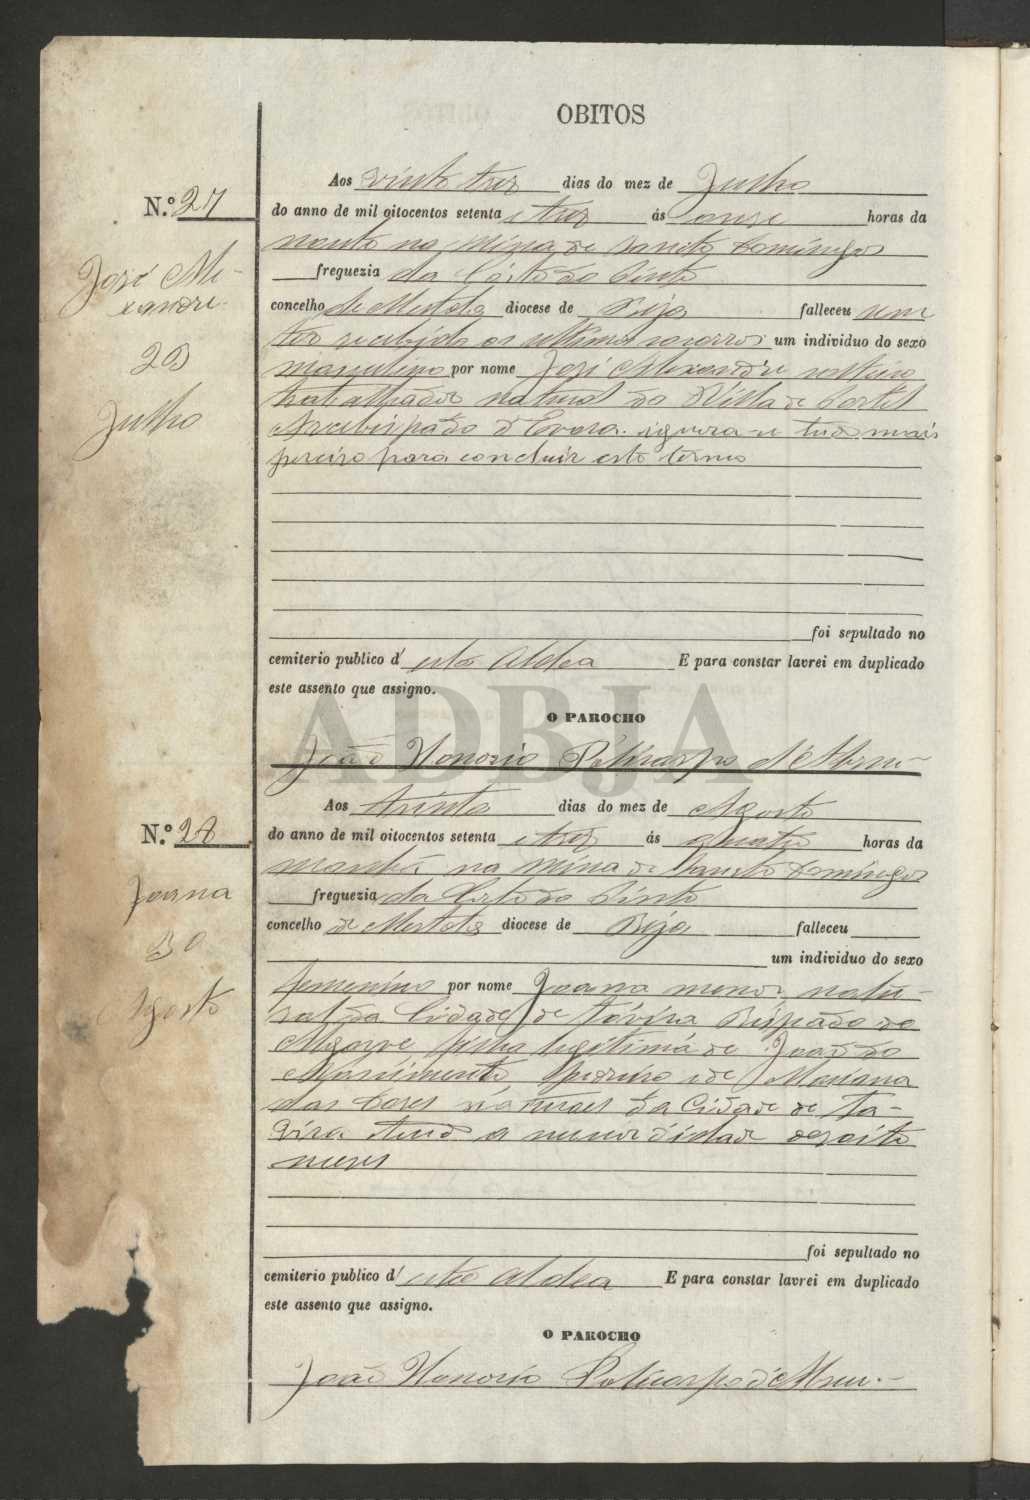 OBITOS
N.º 27
José Ale-
xandre
23
Julho
Aos vinte trez dias do mez de Julho
do anno de mil oitocentos setenta e trez ás onze horas da
noute na Mina de Santo Domingos
freguezia da Corte do Pinto
concelho de Mertola diocese de Beja falleceu sem
ter recebido os ultimos socorros um individuo do sexo
masculino por nome José Alexandre solteiro
trabalhador natural da Villa de Portel
Arcebispado d'Evora. ignora-se tudo mais
preciso para concluir este termo
foi sepultado no
cemiterio publico d' esta Aldea E para constar lavrei em duplicado
este assento que assigno.
O PAROCHO
João Honorio Policarpo d'Abreu-
ADBJA
N.º 28
Joana
30
Agosto
Aos trinta dias do mez de Agosto
do anno de mil oitocentos setenta e trez ás quatro horas da
manhã na Mina de Santo Domingos
freguezia da Corte do Pinto
concelho de Mertola diocese de Beja falleceu
um individuo do sexo
femenino por nome Joana menor natu-
ral da Cidade de Tavira Bispado do
Algarve filha legitima de João do
Nascimento, e de Mariana
das Dores naturaes da Cidade de Ta-
vira tendo a menor d'idade dezoito
mezes
foi sepultado no
cemiterio publico d' esta Aldea E para constar lavrei em duplicado
este assento que assigno.
O PAROCHO
João Honorio Policarpo d'Abreu.-